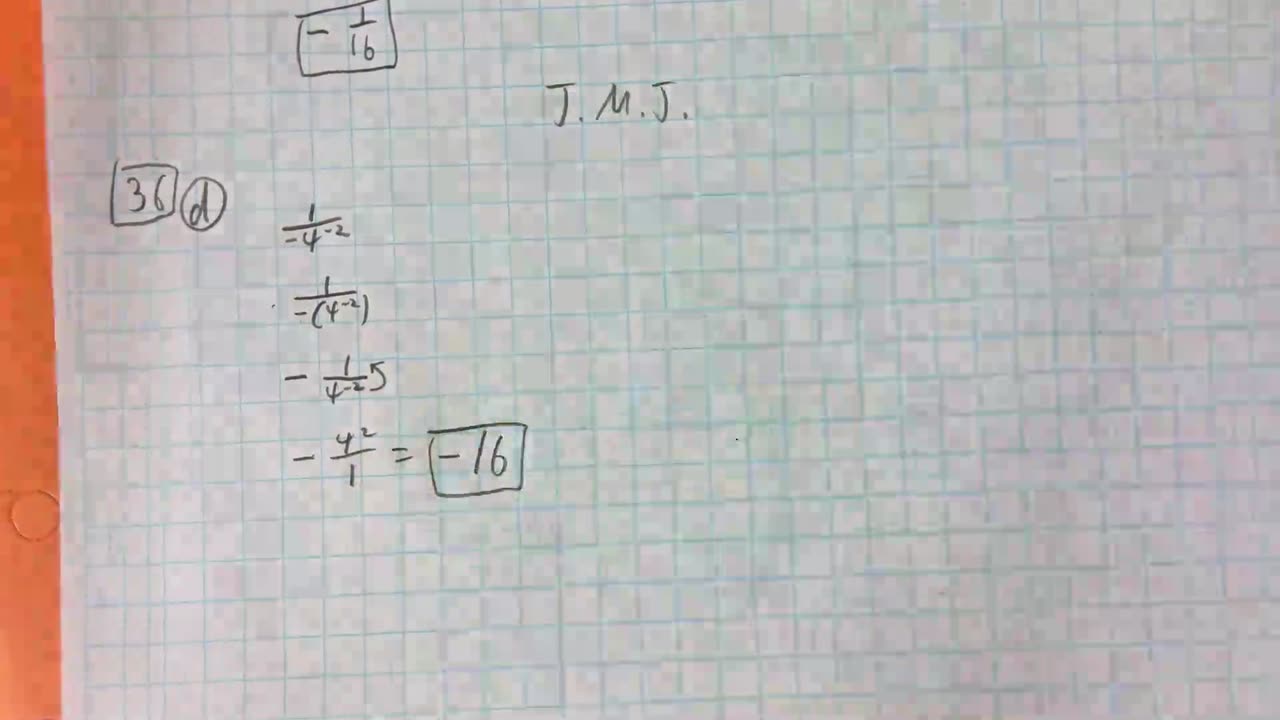 - 1/16
J.M.J.
36 d
1/-4⁻²
1/-(4⁻²)
- 1/4⁻² 5
- 4²/1 = -16